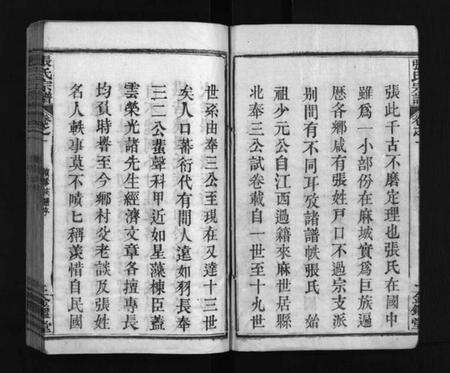 張氏宗譜
卷之一
張此千古不磨定理也張氏在國中
雖爲一小部份在麻城實爲巨族遍
歷各鄉咸有張姓戸口不過宗支派
別間有不同耳攷諸譜帙張氏　始
祖少元公自江西過籍來麻世居縣
北奉三公試卷載自一世至十九世
世系由奉三公至現在又達十三世
矣人口蕃衍代有聞人遠如羽長奉
三二公蜚聲科甲近如星藻棟臣蓋
雲榮光諸先生經濟文章各擅專長
均負時譽至今鄉村父老談及張姓
名人軼事莫不嘖七稱羡惜自民國
張氏宗譜
卷之一
金鑑堂